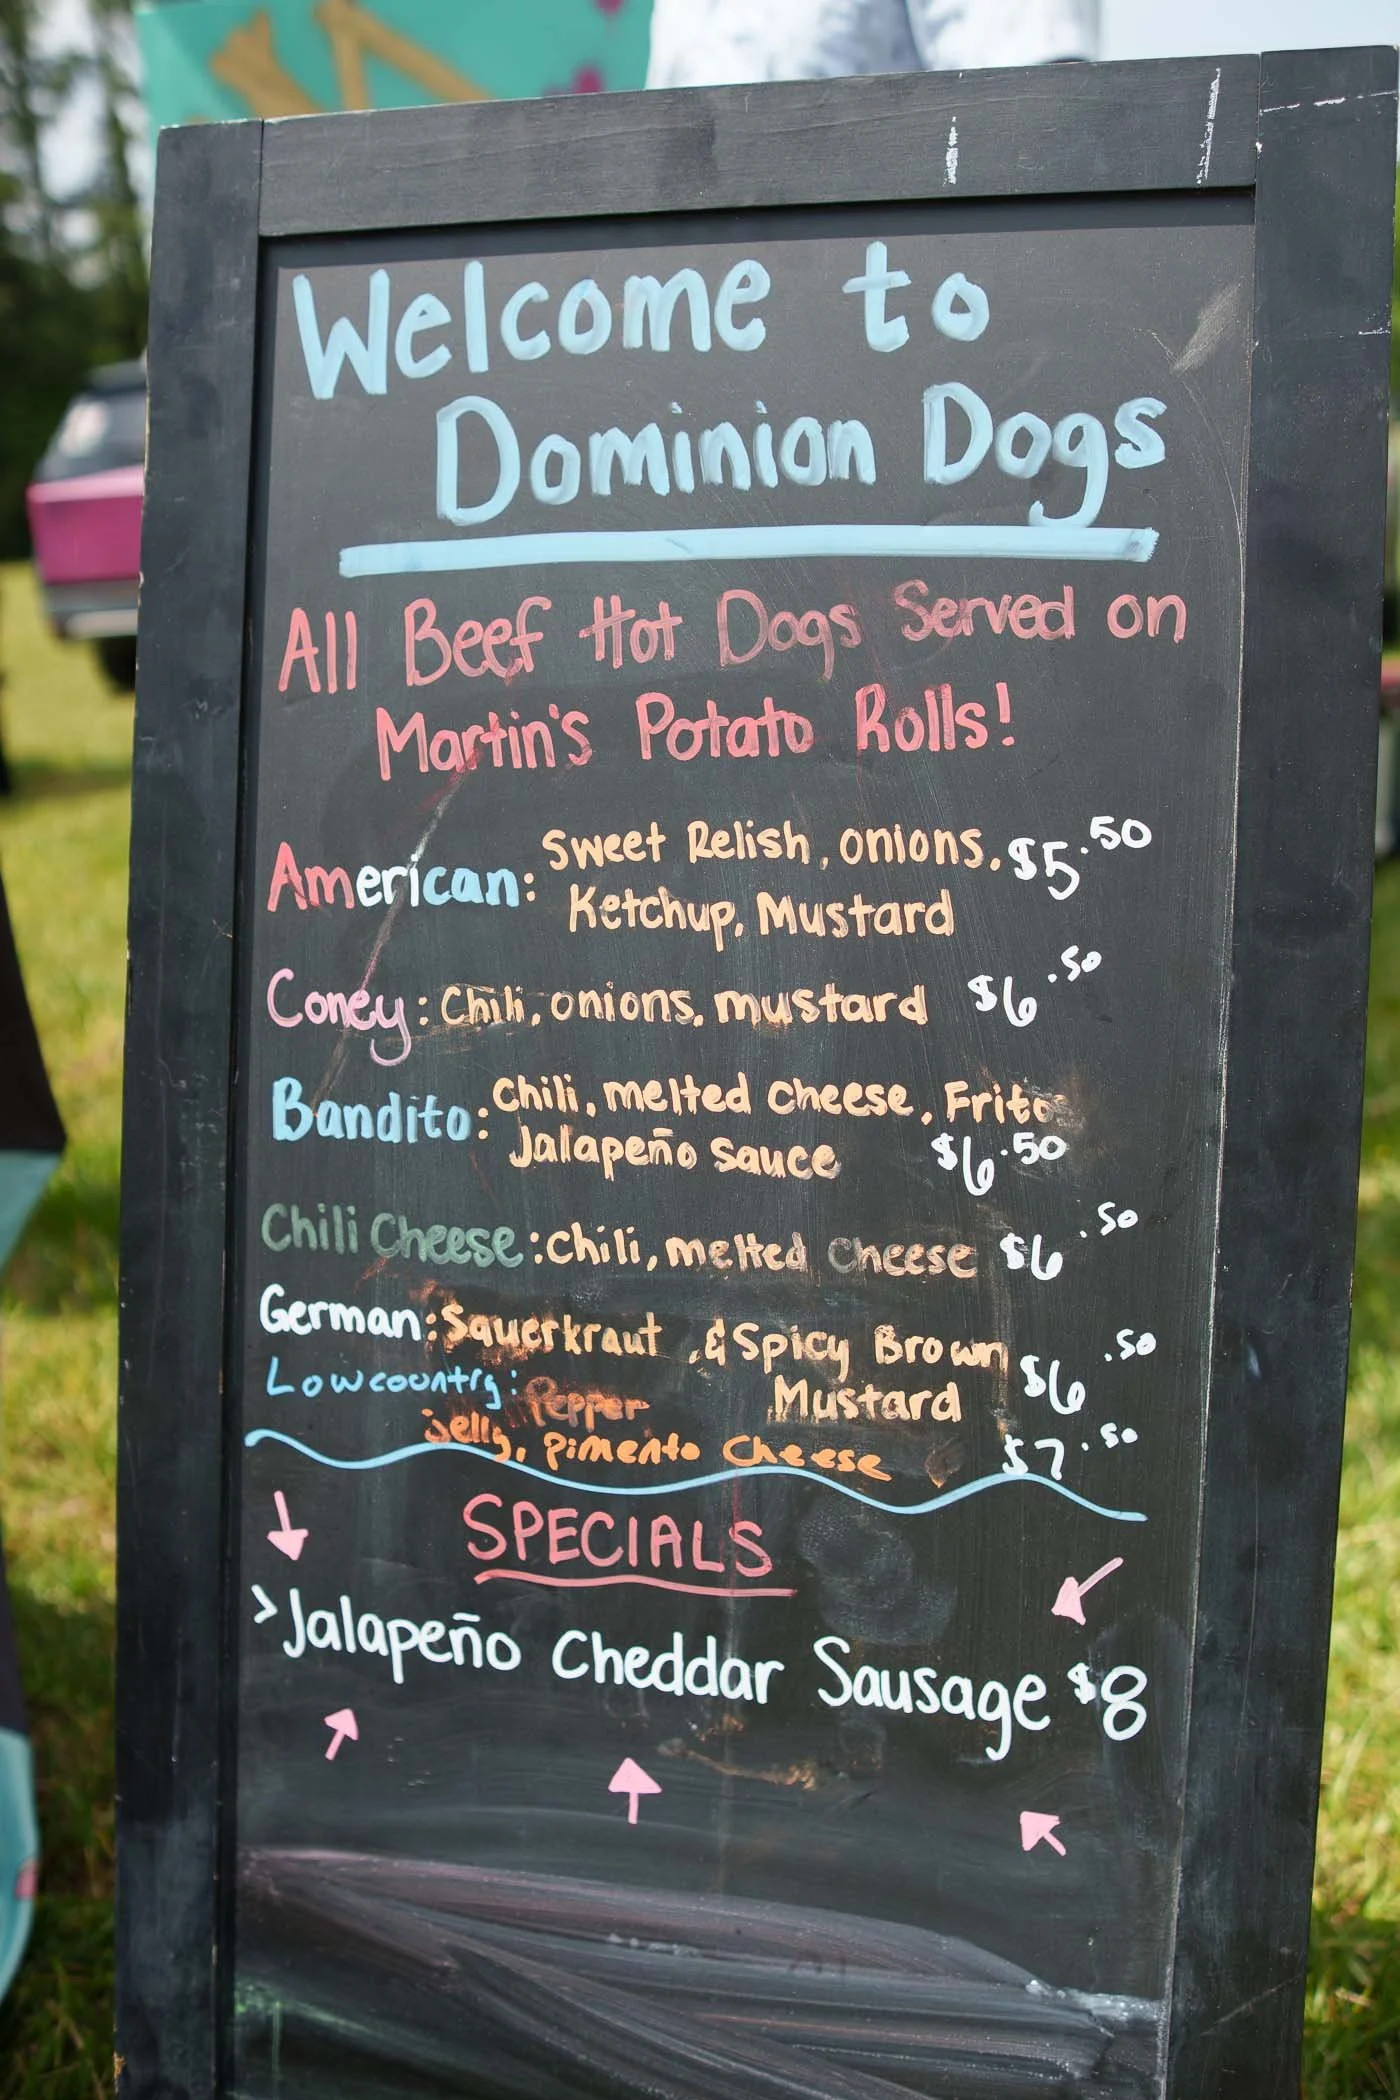 Welcome to
Dominion Dogs
All Beef Hot Dogs Served on
Martin's Potato Rolls!
American: Sweet Relish, onions, $5.50
Ketchup, Mustard
Coney: Chili, onions, mustard $6.50
Bandito: Chili, melted cheese, Fritos
Jalapeño sauce $6.50
Chili Cheese: Chili, melted cheese $6.50
German: Sauerkraut, & Spicy Brown
Mustard $6.50
Lowcountry: Pepper
jelly, pimento cheese $7.50
SPECIALS
>Jalapeño Cheddar Sausage $8